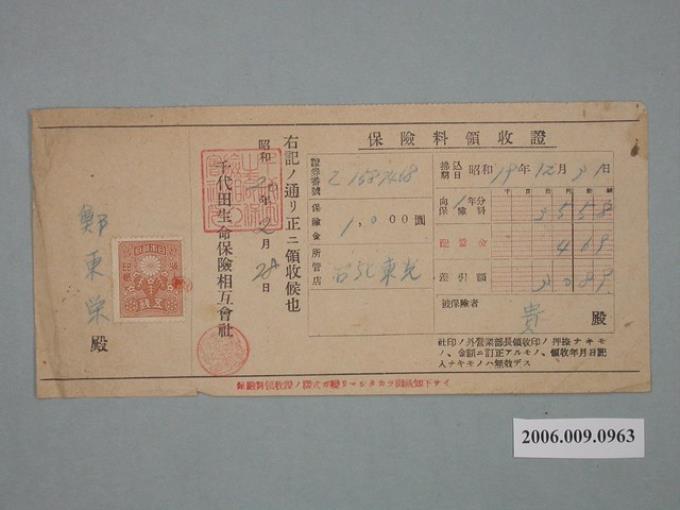 保險料領收證
拂込期日 昭和19年12月31日
向1年分保險料 3558
配當金 469
差引額 3089
被保險者 貴殿
社印ノ外營業部長領收印ノ押捺ナキモノ、金額ニ訂正アルモノ、領收年月日記入ナキモノハ無效デス
證券番號
保險金 1,000圓
所管店 台北東光
右記ノ通リ正ニ領收候也
昭和20年2月28日
千代田生命保險相互會社
鄭東榮殿
五錢
2006.009.0963